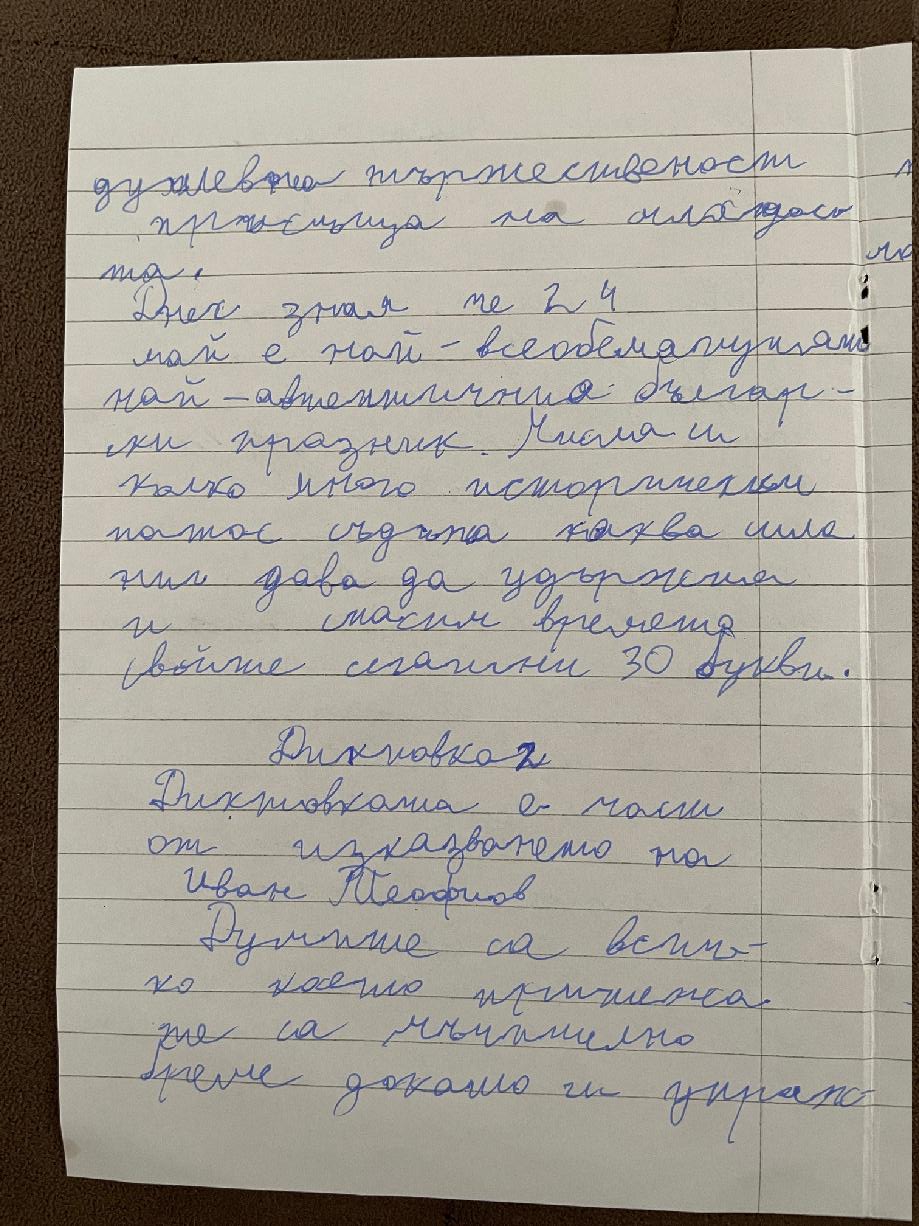 душевна тържественост
присъща на младос
та.
Днес зная че 24
май е най-всеобемащият
най-автентичния българ-
ски празник. Мисля си
колко много исторически
патос съдържа каква сила
ни дава да удържим
и времето
своите 30 букви.
Диктовка 2
Диктовката е част
от изказването на
Иван Теофилов
Думите са всич-
ко което притежа
те са мъчително
бреме докато ги